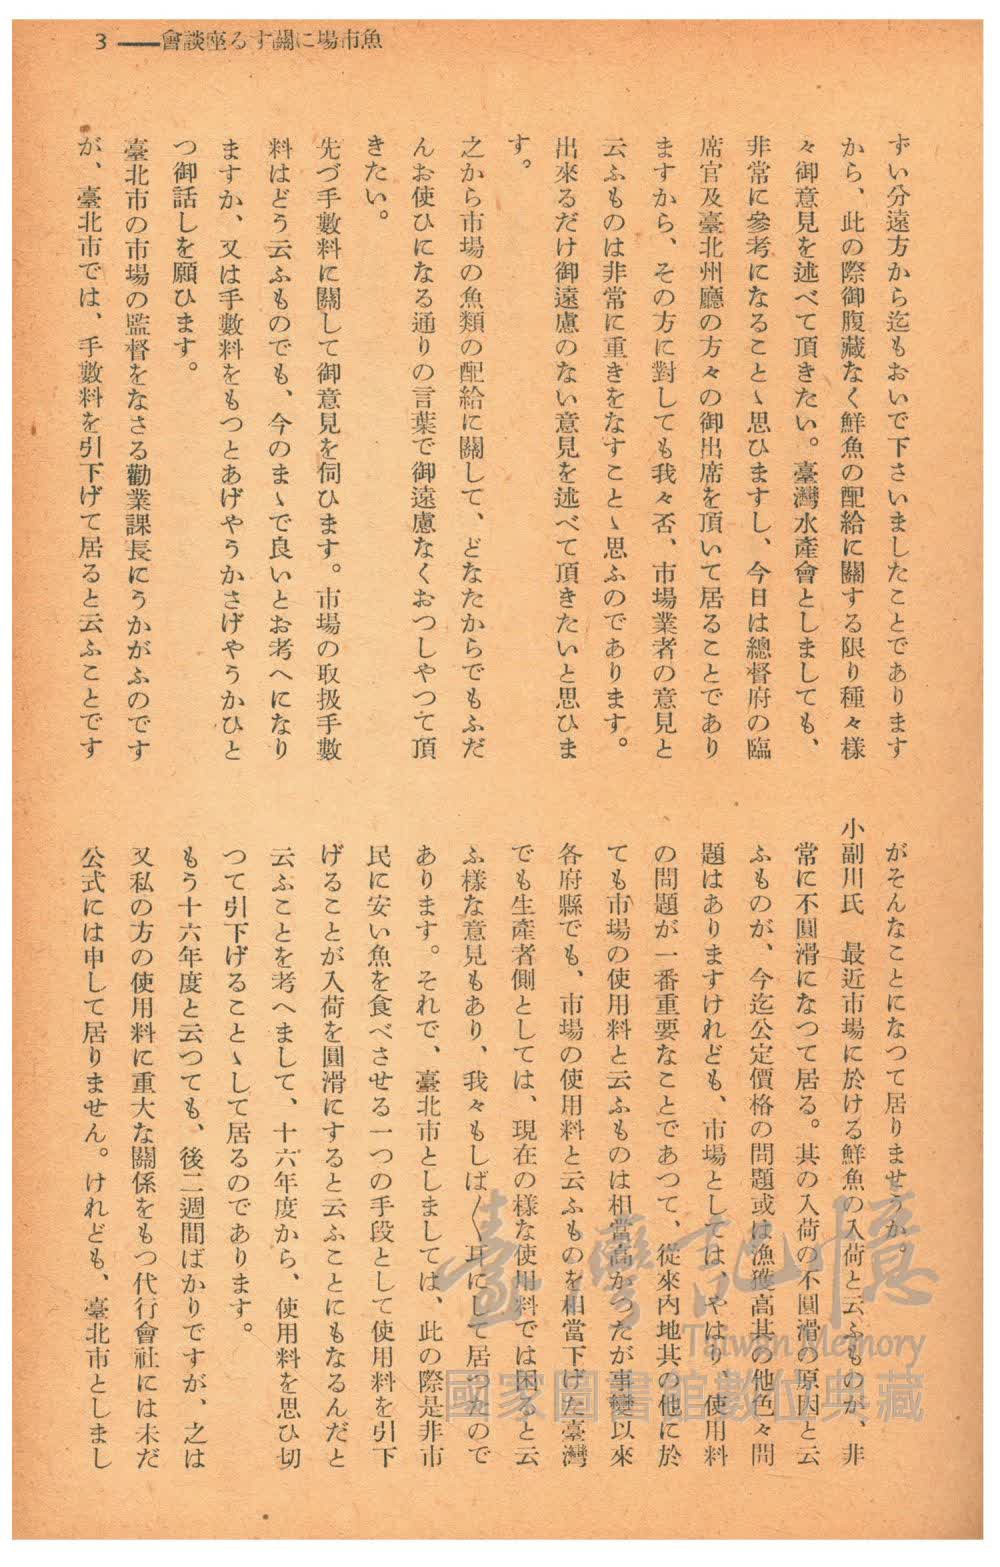 魚市場に關する座談會——3
ずい分遠方から迄もおいで下さいましたことであります
から、此の際御腹藏なく鮮魚の配給に關する限り種々樣
々御意見を述べて頂きたい。臺灣水產會としましても、
非常に參考になることゝ思ひますし、今日は總督府の臨
席官及臺北州廳の方々の御出席を頂いて居ることであり
ますから、その方に對しても我々否、市場業者の意見と
云ふものは非常に重きをなすことゝ思ふのであります。
出來るだけ御遠慮のない意見を述べて頂きたいと思ひま
す。
之から市場の魚類の配給に關して、どなたからでもふだ
んお使ひになる通りの言葉で御遠慮なくおつしやつて頂
きたい。
先づ手數料に關して御意見を伺ひます。市場の取扱手數
料はどう云ふものでも、今のまゝで良いとお考へになり
ますか、又は手數料をもつとあげやうかさげやうかひと
つ御話しを願ひます。
臺北市の市場の監督をなさる勸業課長にうかがふのです
が、臺北市では、手數料を引下げて居ると云ふことです
がそんなことになつて居りませうか。
小副川氏　最近市場に於ける鮮魚の入荷と云ふものが、非
常に不圓滑になつて居る。其の入荷の不圓滑の原因と云
ふものが、今迄公定價格の問題或は漁獲高其の他色々問
題はありますけれども、市場としては、やはり、使用料
の問題が一番重要なことであつて、從來內地其の他に於
ても市場の使用料と云ふものは相當高かつたが事變以來
各府縣でも、市場の使用料と云ふものを相當下げた臺灣
でも生產者側としては、現在の樣な使用料では困ると云
ふ樣な意見もあり、我々もしば〱耳にして居つたので
あります。それで、臺北市としましては、此の際是非市
民に安い魚を食べさせる一つの手段として使用料を引下
げることが入荷を圓滑にすると云ふことにもなるんだと
云ふことを考へまして、十六年度から、使用料を思ひ切
つて引下げることゝして居るのであります。
もう十六年度と云つても、後二週間ばかりですが、之は
又私の方の使用料に重大な關係をもつ代行會社には未だ
公式には申して居りません。けれども、臺北市としまし
臺灣記憶
Taiwan Memory
國家圖書館數位典藏